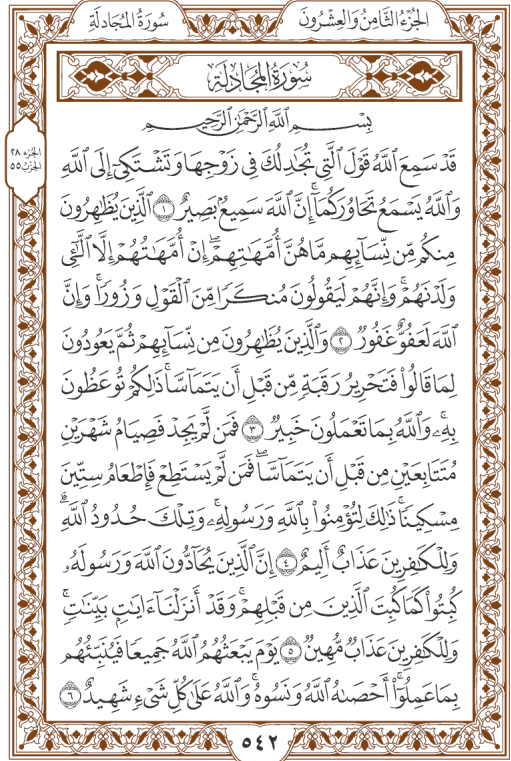 الجُزْءُ الثَّامِنُ وَالعِشْرُونَ
سُورَةُ المُجَادَلَةِ
سُورَةُ المُجَادلَة
بِسْمِ ٱللَّهِ ٱلرَّحْمَٰنِ ٱلرَّحِيمِ
الجزء ٢٨
الحزب ٥٥
قَدْ سَمِعَ ٱللَّهُ قَوْلَ ٱلَّتِى تُجَٰدِلُكَ فِى زَوْجِهَا وَتَشْتَكِىٓ إِلَى ٱللَّهِ
وَٱللَّهُ يَسْمَعُ تَحَاوُرَكُمَآ ۚ إِنَّ ٱللَّهَ سَمِيعٌۢ بَصِيرٌ ١ ٱلَّذِينَ يُظَٰهِرُونَ
مِنكُم مِّن نِّسَآئِهِم مَّا هُنَّ أُمَّهَٰتِهِمْ ۖ إِنْ أُمَّهَٰتُهُمْ إِلَّا ٱلَّٰٓـِٔى
وَلَدْنَهُمْ ۚ وَإِنَّهُمْ لَيَقُولُونَ مُنكَرًا مِّنَ ٱلْقَوْلِ وَزُورًا ۚ وَإِنَّ
ٱللَّهَ لَعَفُوٌّ غَفُورٌ ٢ وَٱلَّذِينَ يُظَٰهِرُونَ مِن نِّسَآئِهِمْ ثُمَّ يَعُودُونَ
لِمَا قَالُوا۟ فَتَحْرِيرُ رَقَبَةٍ مِّن قَبْلِ أَن يَتَمَآسَّا ۚ ذَٰلِكُمْ تُوعَظُونَ
بِهِۦ ۚ وَٱللَّهُ بِمَا تَعْمَلُونَ خَبِيرٌ ٣ فَمَن لَّمْ يَجِدْ فَصِيَامُ شَهْرَيْنِ
مُتَتَابِعَيْنِ مِن قَبْلِ أَن يَتَمَآسَّا ۖ فَمَن لَّمْ يَسْتَطِعْ فَإِطْعَامُ سِتِّينَ
مِسْكِينًا ۚ ذَٰلِكَ لِتُؤْمِنُوا۟ بِٱللَّهِ وَرَسُولِهِۦ ۚ وَتِلْكَ حُدُودُ ٱللَّهِ ۗ
وَلِلْكَٰفِرِينَ عَذَابٌ أَلِيمٌ ٤ إِنَّ ٱلَّذِينَ يُحَآدُّونَ ٱللَّهَ وَرَسُولَهُۥ
كُبِتُوا۟ كَمَا كُبِتَ ٱلَّذِينَ مِن قَبْلِهِمْ ۚ وَقَدْ أَنزَلْنَآ ءَايَٰتٍۭ بَيِّنَٰتٍ ۚ
وَلِلْكَٰفِرِينَ عَذَابٌ مُّهِينٌ ٥ يَوْمَ يَبْعَثُهُمُ ٱللَّهُ جَمِيعًا فَيُنَبِّئُهُم
بِمَا عَمِلُوٓا۟ ۚ أَحْصَىٰهُ ٱللَّهُ وَنَسُوهُ ۚ وَٱللَّهُ عَلَىٰ كُلِّ شَىْءٍ شَهِيدٌ ٦
٥٤٢